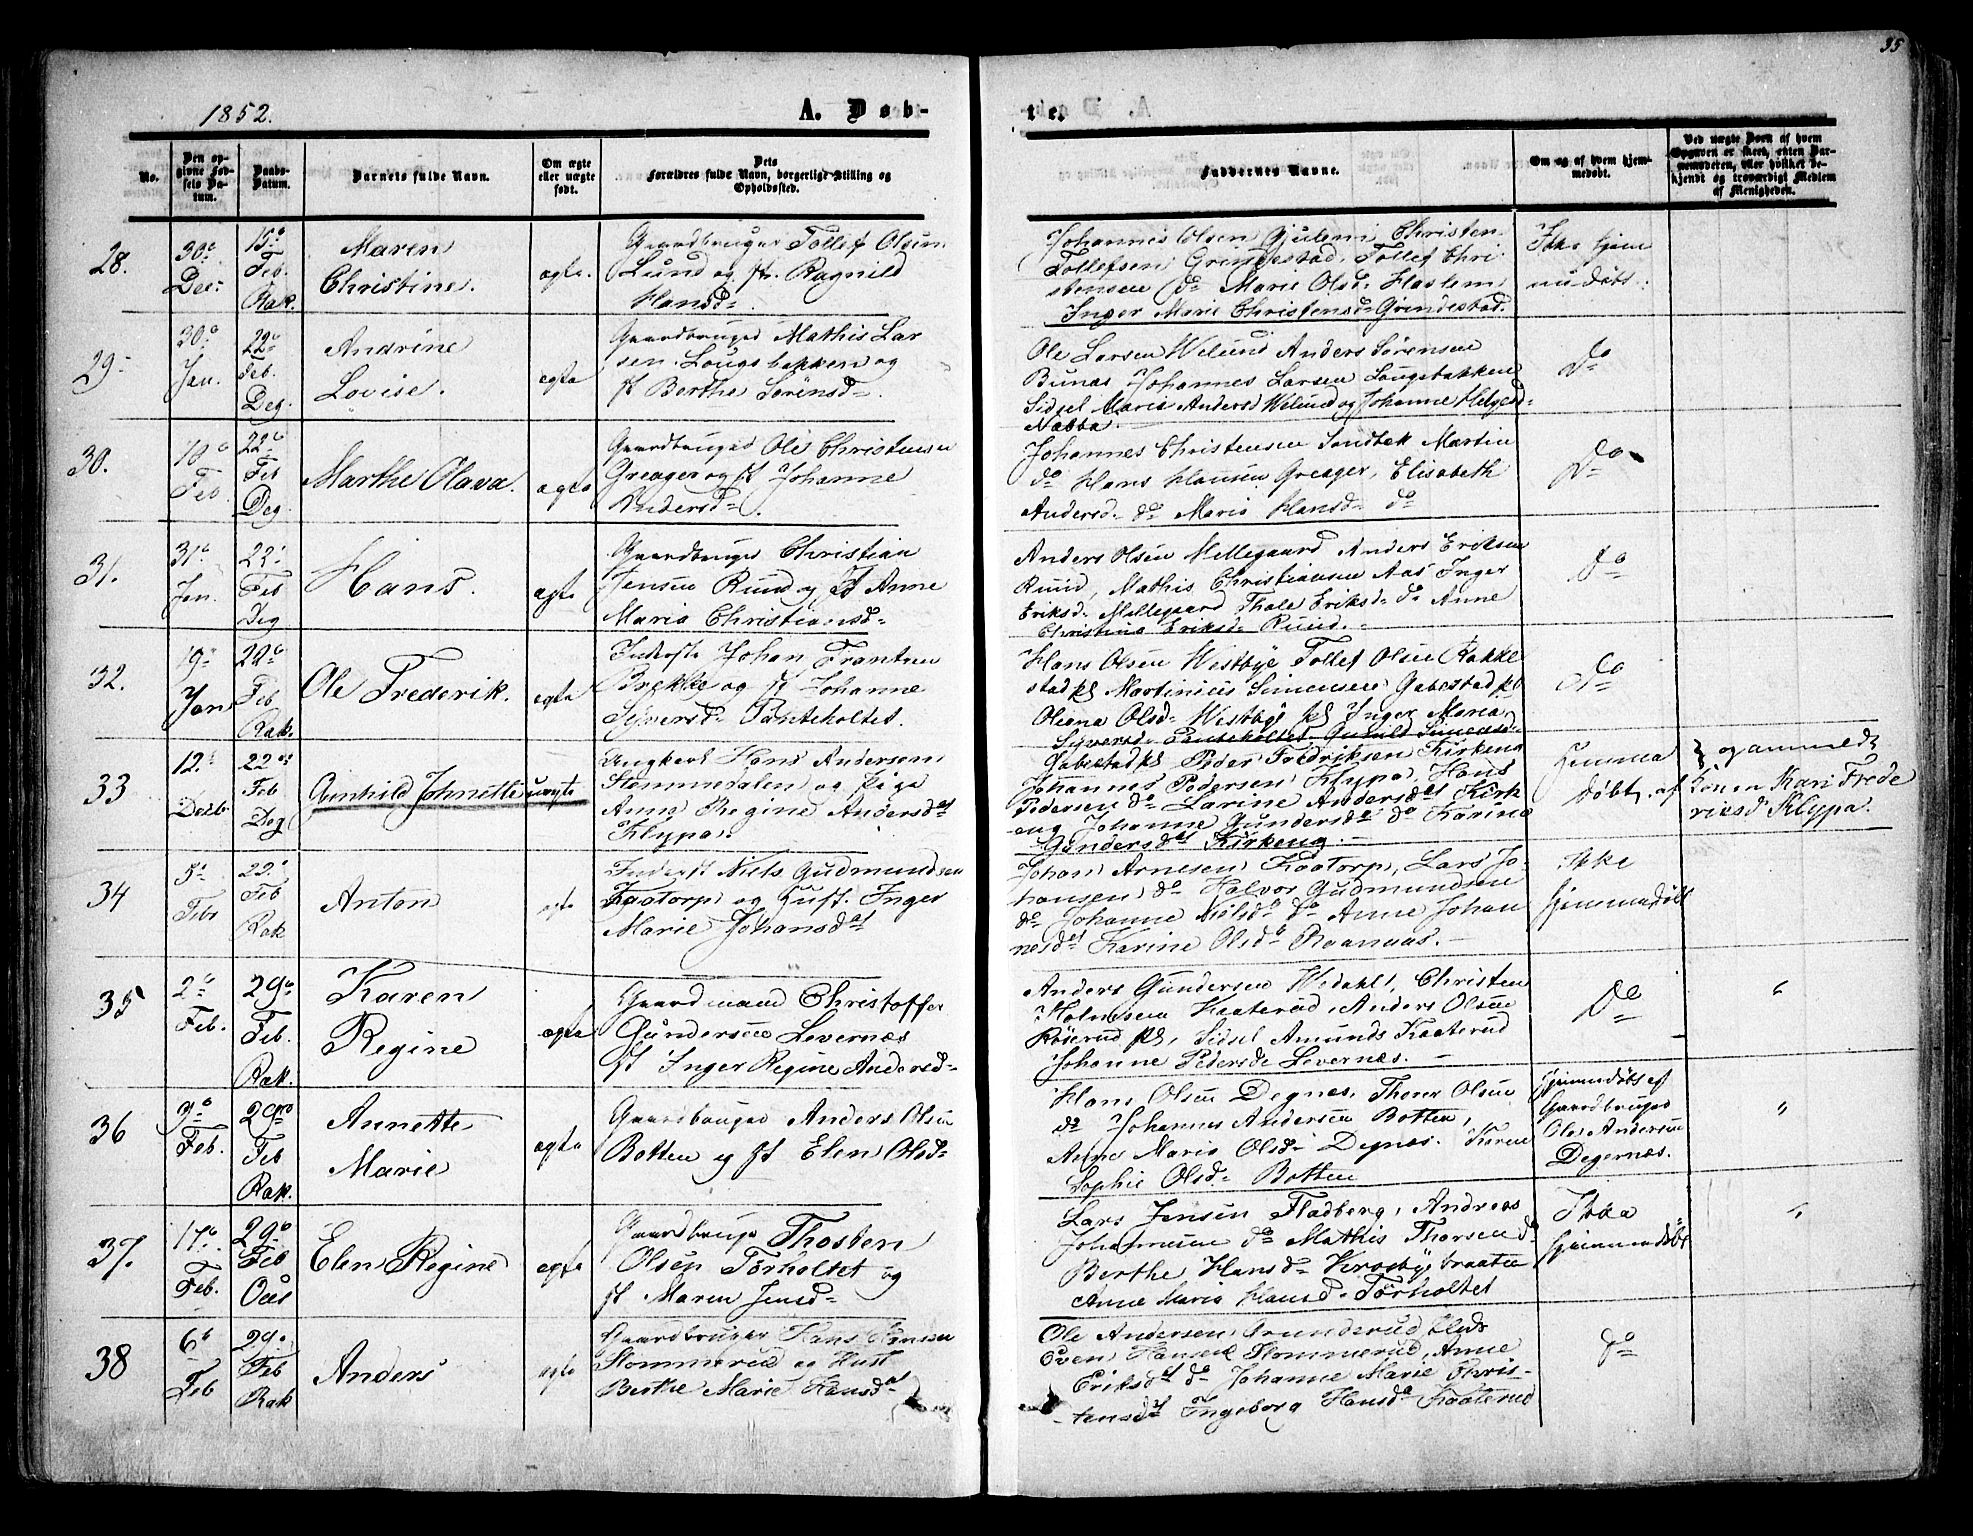 35
1852.
A. Døb-
te.
No.
Den op-
givne Fød-
sels Da-
tum.
Daabs-
Datum.
Barnets fulde Navn.
Om ægte
eller uægte
født.
Dets
Forældres fulde Navn, borgerlige Stilling og
Opholdssted.
Faddernes Navne.
Om og af hvem hjem-
medøbt.
Ved uægte Børn af hvem
Opgaven er skeet, enten Bar-
nemoderen, eller hvilket be-
kjendt og troværdigt Medlem
af Menigheden.
28.
30te
Dec.
15de
Feb.
Rak.
Maren
Christine.
ægte.
Gaardbruger Tollef Olsen
Lund og H. Ragnild
Hansd.
Johannes Olsen Gjulem, Christen
Tollefsen Grindestad, Tollef Chri
stensen do Marie Olsd. Haslem
Inger Marie Christensd. Grindestad.
Ikke hjem
medøbt.
29.
30te
Jan.
22de
Feb.
Deg.
Andrine
Lovise.
ægte
Gaardbruger Mathis Lar
sen Lougsbakken og
H Berthe Sørensd.
Ole Larsen Welund Anders Sørensen
Bunas Johannes Larsen Lougsbakken
Sidsel Maria Andersd Welund og Johanne Helgesd.
Nabba.
Do
30.
10de
Feb.
22de
Feb
Deg.
Marthe Olava.
ægte
Gaardbruger Ole Christensen
Greager og H Johanne
Andersd.
Johannes Christensen Sandbæk Martin
do Hans Hansen Greager, Elisabeth
Andersd. do Maria Hansd. do
Do
31.
31te
Jan.
22.
Feb
Deg
Hans.
ægte
Gaardbruger Christian
Jensen Ruud og H Anne
Maria Christiansd.
Anders Olsen Mellegaard Anders Eriksen
Ruud, Mathis Christiansen Aas Inger
Eriksd. Mellegaard Thale Eriksd. do Anne
Christina Eriksd. Ruud.
Do
32.
19
Jan
22de
Feb
Rak.
Ole Frederik.
ægte
Inderste Johan Frantsen
Brekke og H Johanne
Syversd. Panteholtet.
Hans Olsen Westbye Tollef Olsen Rakke
stad pl Martinius Simensen Gabestad pl
Oliana Olsd. Westbye pl Inger Maria
Syversd. Panteholtet Gunild Simensd.
Gabestad pl
Do
33
12.
Decb.
22de
Feb
Deg
Gunhild Johnette
uægte
Ungkarl Hans Andersen
Slommedalen og Pige
Anne Regine Andersdat
Klypa.
Peder Fredriksen Kirkeng
Johannes Pedersen Klypa, Hans
Pedersen do Larine Andersdat Kirk
eng Johanne Gundersda do Karine
Gundersdat Kirkeng.
Hjemme
døbt af
og anmeldt
Konen Kari Frede
riksd Klypa.
34
5te
Febr
22.
Feb
Rak
Anton
ægte
Inderst Niels Gudmundsen
Kaatorp og Hust. Inger
Marie Johansdat
Johan Arnesen Kaatorp, Lars Jo-
hansen do Halvor Gudmundsen
do Johanne Nilsda do Anne Johan
nesdat Karine Olsda Raanaas.
Ikke
hjemmedøbt
35
2de
Feb.
29de
Feb.
Rak.
Karen
Regine
ægte
Gaardmand Christoffer
Gundersen Levernæs
H Inger Regine Andersd.
Anders Gundersen Wedahl, Christen
Holmsen Kaaterud, Anders Olsen
Røserud pl, Sidsel Amunds Kaaterud
Johanne Pedersd Levernæs.
Do
36
7de
Feb.
29de
Feb
Rak.
Annette
Marie
ægte
Gaardbruger Anders Olsen
Botten og H Elen Olsd.
Hans Olsen Degnæs, Thorer Olsen
do Johannes Andersen Botten,
Anne Maria Olsd. Degnæs. Karen
Sophie Olsd. Botten
Hjemmedøbt af
Gaardbruger
Ole Andersen
Degernæs.
37.
17de
Feb.
29de
Feb
Oas
Elen Regine
ægte
Gaardbruger Thosten
Olsen Torholtet og
H Maren Jensd.
Lars Jensen Fladberg, Andreas
Johannesen do Mathis Thorsen do
Berthe Hansd. Krosbybraaten
Anne Maria Hansd. Torholtet
Ikke
hjemmedøbt
38
6te
Feb
29.
Feb
Rak
Anders
ægte
Gaardbruger Hans Hansen
Slommerud og Hust
Berthe Marie Hansdat
Ole Andersen Grunderud
Even Hansen Slommerud, Anne
Eriksdat do Johanne Marie Chris-
tensdat Ingeborg Hansda Kaaterud
do